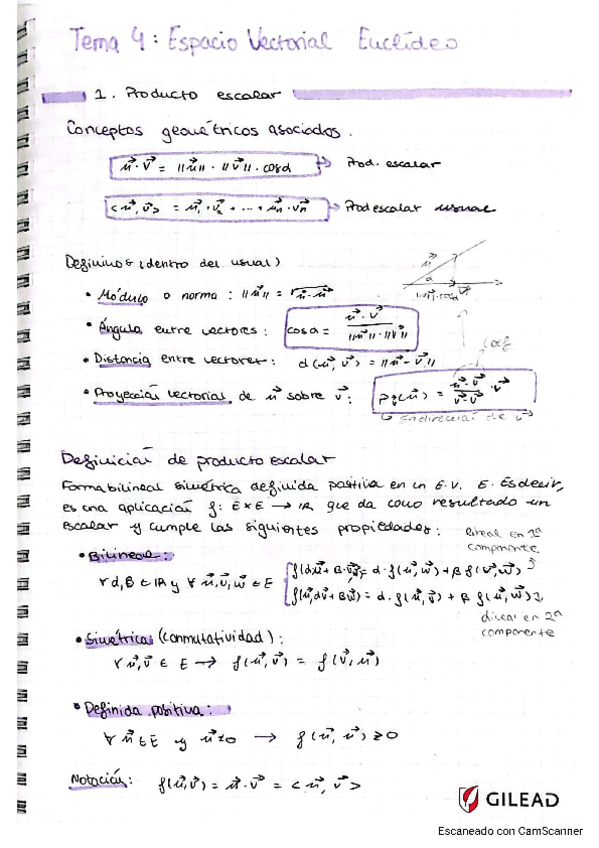 Tema 4: Espacio Vectorial Euclídeo
1. Producto escalar
Conceptos geométricos asociados.
u⃗ · v⃗ = ||u⃗|| · ||v⃗|| · cosα → Prod. escalar
<u⃗, v⃗> = u⃗₁ · v⃗₁ + ... + u⃗ₙ · v⃗ₙ → Prod escalar usual
(dentro del usual)
u⃗
α
v⃗
• Módulo o norma : ||u⃗|| = √(u⃗ · u⃗)
• Ángulo entre vectores : cosα = (u⃗ · v⃗) / (||u⃗|| · ||v⃗||)
coef
• Distancia entre vectores : d(u⃗, v⃗) = ||u⃗ - v⃗||
• Proyección vectorial de u⃗ sobre v⃗ : Pv⃗(u⃗) = (u⃗ · v⃗)/(v⃗ · v⃗) · v⃗
↳ En dirección de v⃗
Definición de producto escalar
Forma bilineal simétrica definida positiva en un E.V. E. Es decir,
es una aplicación f: E×E → IR que da como resultado un
escalar y cumple las siguientes propiedades :
lineal en 1ª
componente
• Bilineal :
∀ α, β ∈ IR y ∀ u⃗, v⃗, w⃗ ∈ E
f(αu⃗ + βv⃗, w⃗) = α · f(u⃗, w⃗) + β f(v⃗, w⃗)
f(u⃗, αv⃗ + βw⃗) = α · f(u⃗, v⃗) + β f(u⃗, w⃗)
lineal en 2ª
componente
• Simétrica (conmutatividad) :
∀ u⃗, v⃗ ∈ E → f(u⃗, v⃗) = f(v⃗, u⃗)
• Definida positiva :
∀ u⃗ ∈ E y u⃗ ≠ 0 → f(u⃗, u⃗) ≥ 0
Notación : f(u⃗, v⃗) = u⃗ · v⃗ = <u⃗, v⃗>
GILEAD
Escaneado con CamScanner